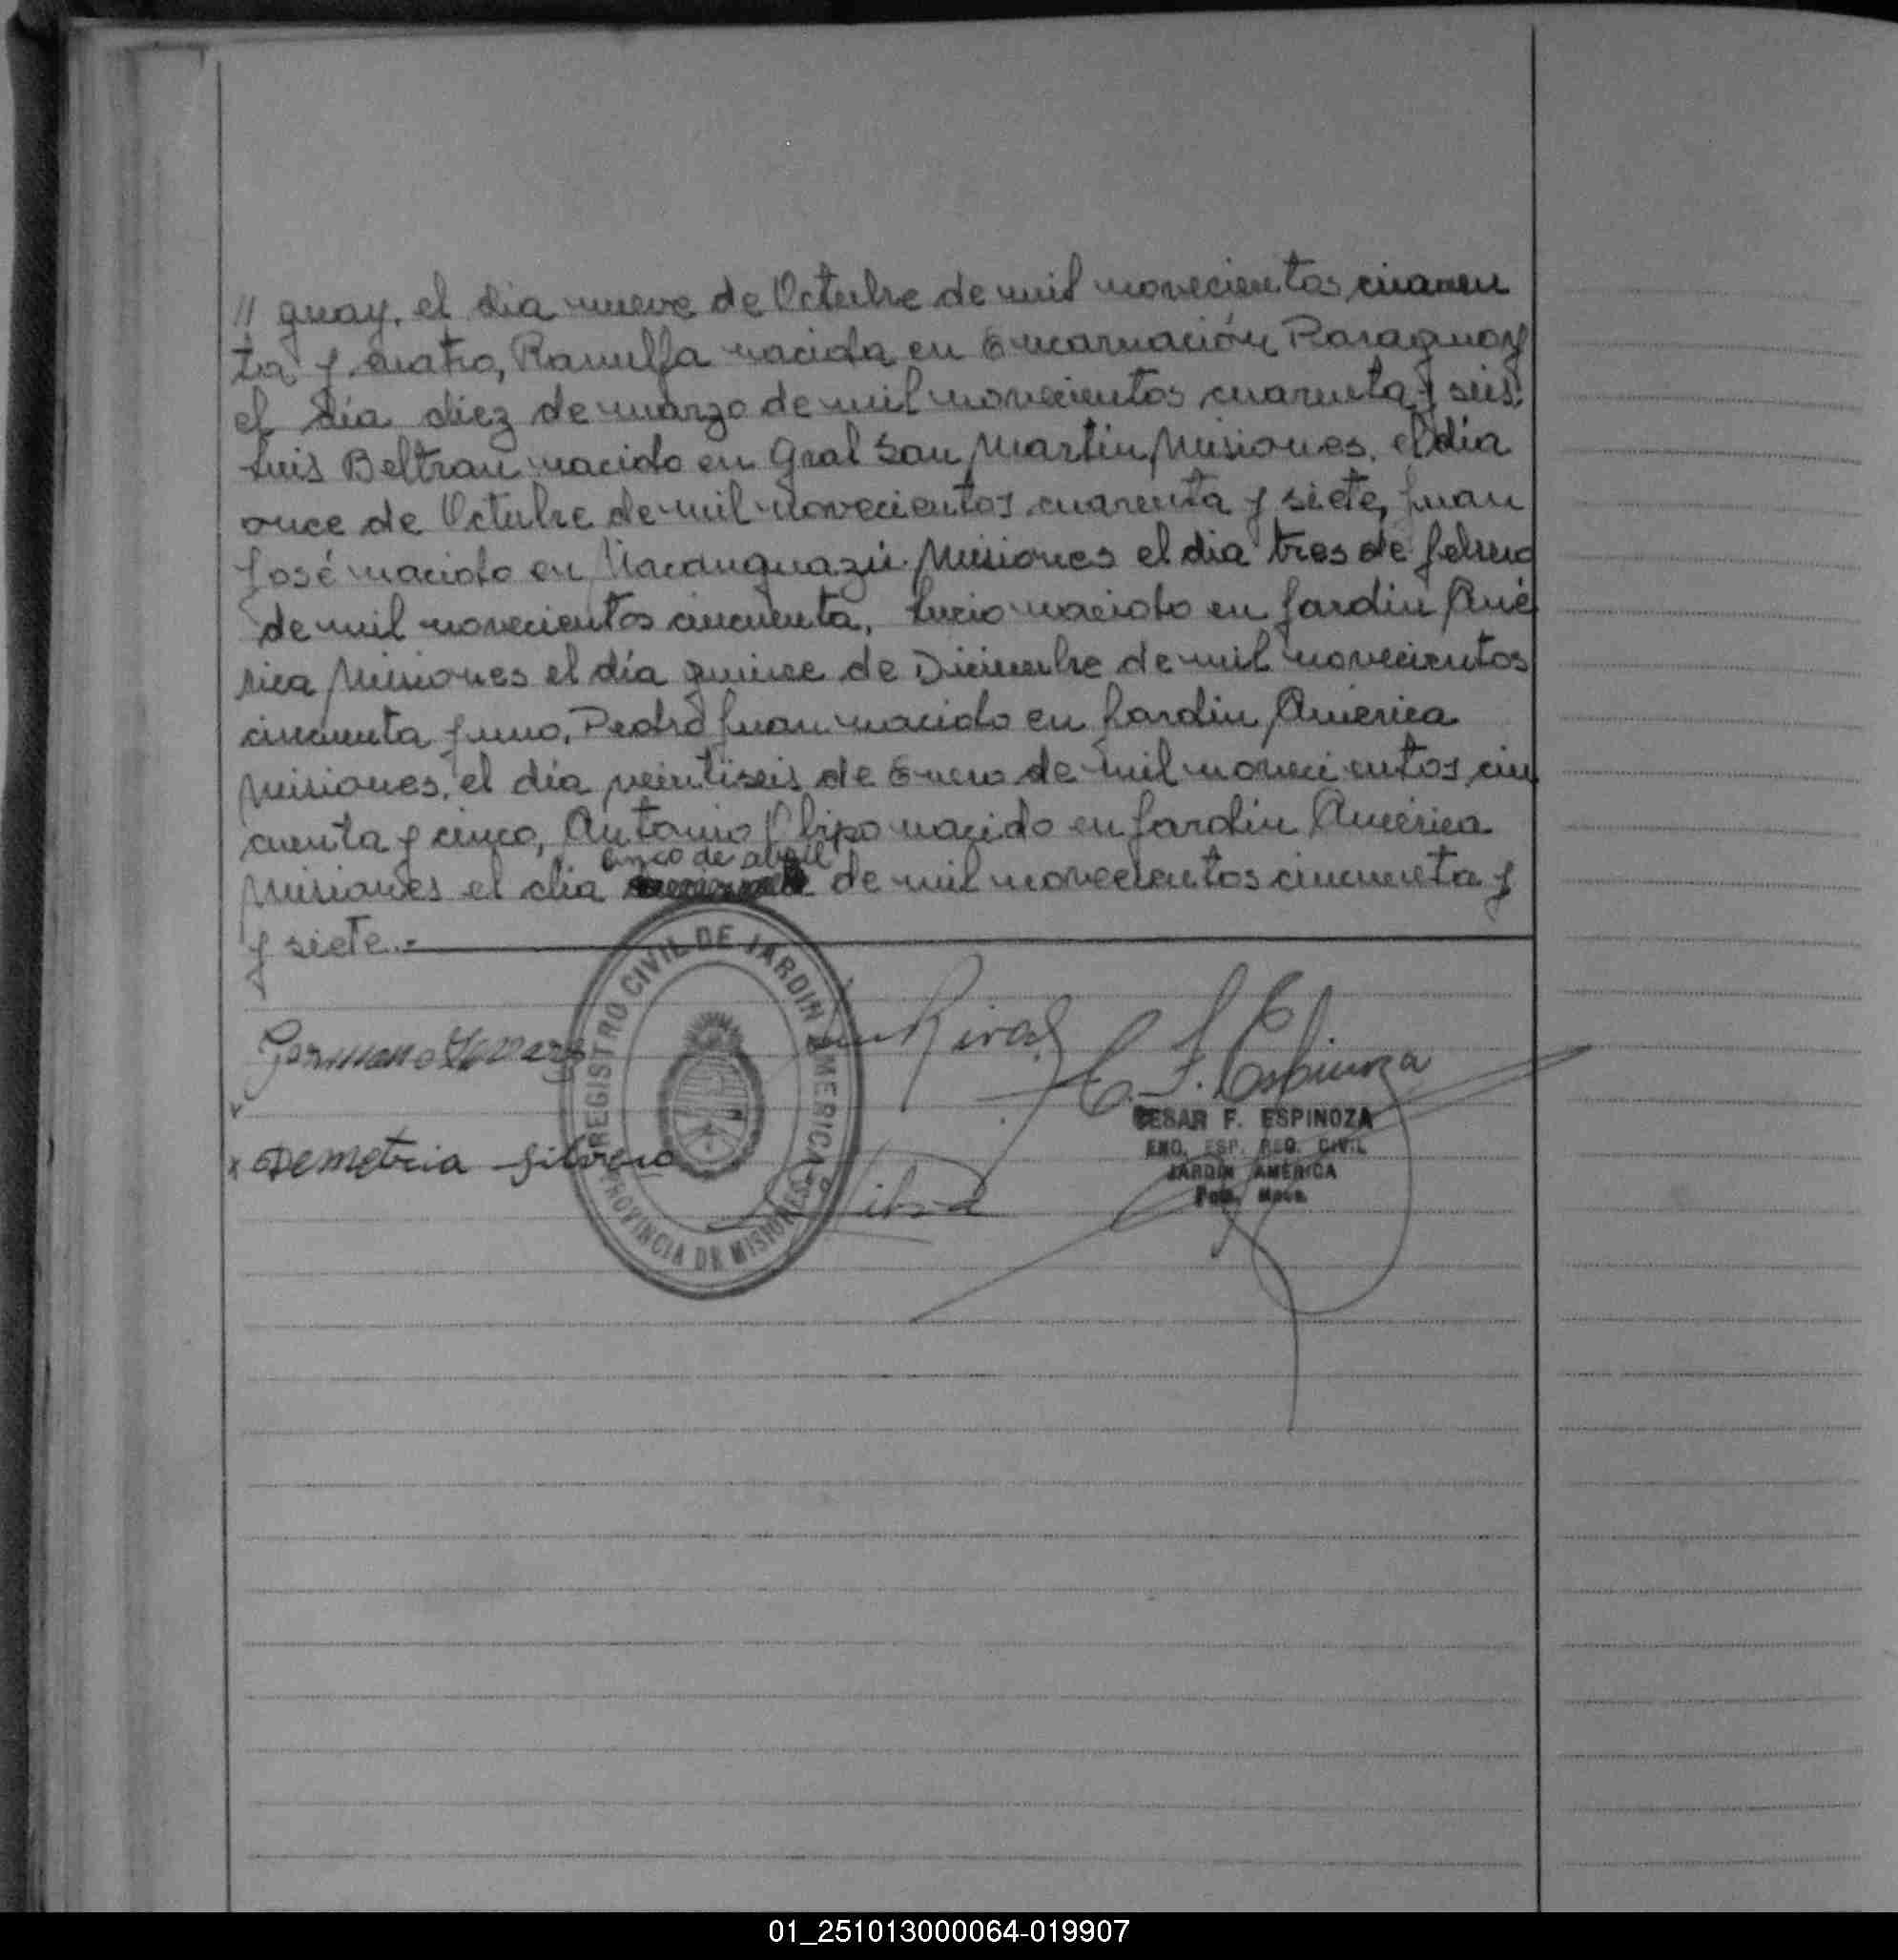 // guay, el dia nueve de Octubre de mil novecientos cuaren
ta y cuatro, Ranulfa nacida en Encarnación Paraguay
el día diez de marzo de mil novecientos cuarenta y seis,
Luis Beltran nacido en Gral San Martin, Misiones, el día
once de Octubre de mil novecientos cuarenta y siete, Juan
José nacido en Ñacanguazú Misiones el dia tres de febrero
de mil novecientos cincuenta, Lucio nacido en Jardin Amé
rica Misiones el día quince de Diciembre de mil novecientos
cincuenta y uno, Pedro Juan nacido en Jardin América
Misiones, el día veintiseis de Enero de mil novecientos cin
cuenta y cinco, Antonio nacido en Jardín América
cinco de abril
Misiones el dia de mil novecientos cincuenta y
y siete.-
REGISTRO CIVIL DE JARDIN AMERICA
PROVINCIA DE MISIONES
Rivas
C. F. Espinoza
Germano
CESAR F. ESPINOZA
ENC. ESP. REG. CIVIL
JARDIN AMERICA
x Demetria Silvero
01_251013000064-019907